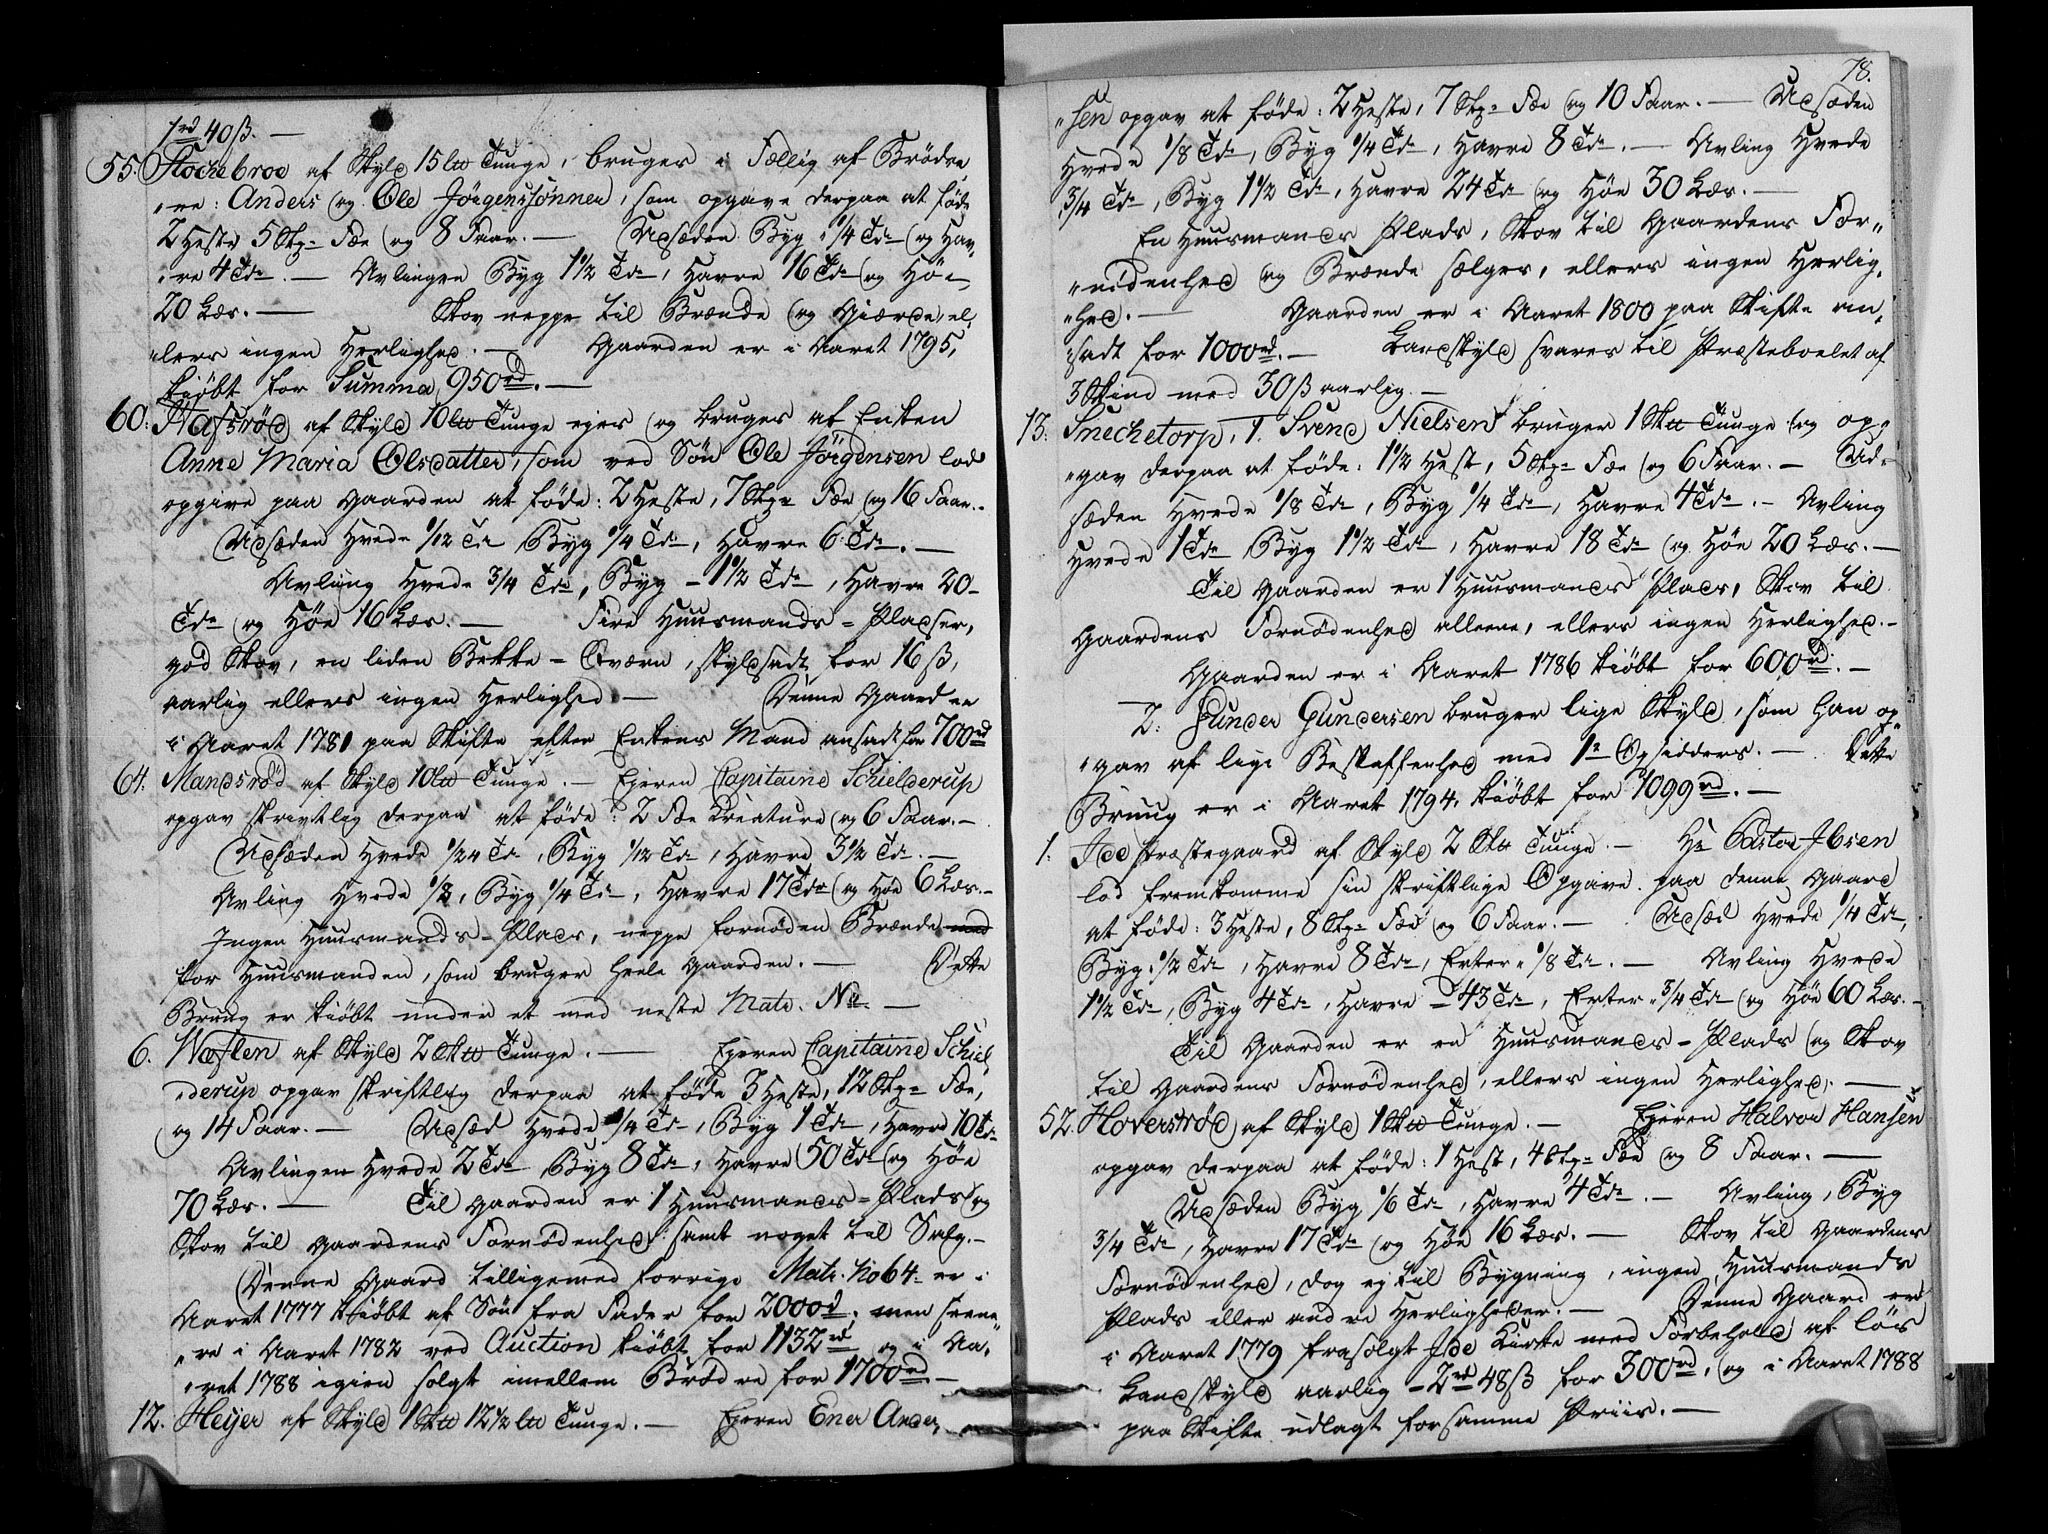 1 rd 40 ß. —
55. Stochebroe af Skyld 15 l℔ Tunge, bruges i Fællig af Brödre
"ne: Anders og Ole Jörgenssönner, som opgave derpaa at föde
2 Heste 5 Stk= Fæ og 8 Faar. — Udsæden Byg 1/4 Tde og Hav,
"re 4 Tde. — Avlingen Byg 1 1/2 Tde, Havre 16 Tde og Höe
20 Læs. — Skov neppe til Brænde og Gierde, el,
"lers ingen Herlighed. — Gaarden er i Aaret 1795,
kiöbt for Summa 950 rd. —
60: Hafsröd af Skyld 10 l℔ Tunge ejes og bruges af Enken
Anne Maria Olsdatter, som ved Sön Ole Jörgensen lod
opgive paa Gaarden at föde: 2 Heste, 7 Stk= Fæ og 16 Faar. -
Udsæden Hvede 1/12 Tde Byg 1/4 Tde, Havre 6 Tde. —
Avling Hvede 3/4 Tde, Byg - 1 1/2 Tde, Havre 20 -
Tde og Höe 16 Læs. — Fire Huusmands-Pladser,
god Skov, en liden Bekke-Qværn, skyldsadt for 16 ß,
aarlig ellers ingen Herlighed — Denne Gaard er
i Aaret 1781 paa Skifte efter Enkens Mand ansadt for 700 rd
64. Mandsröd af Skyld 10 l℔ Tunge. — Ejeren Capitaine Schielderup
opgav skrivtlig derpaa at föde: 2 Fæ Kreature og 6 Faar. —
Udsæden Hvede 1/24 Tde, Byg 1/12 Tde, Havre 3 1/2 Tde. —
Avling Hvede 1/8, Byg 1/4 Tde, Havre 17 Tde og Höe 6 Læs. —
Ingen Huusmands-Plads, neppe fornöden Brænde med
for Huusmanden, som bruger heele Gaarden. — Dette
Brug er kiöbt under et med neste Matr. No. —
6. Weften af Skyld 2 Sk℔ Tunge. — Ejeren Capitaine Schiel
"derup opgav skriftlig derpaa at föde 3 Heste, 12 Stk= Fæ,
og 14 Faar. — Udsæd Hvede 1/4 Tde, Byg 1 Tde, Havre 10 Tde
Avlingen Hvede 2 Tde Byg 8 Tde, Havre 50 Tde og Höe
70 Læs. — Til Gaarden er 1 Huusmands-Plads og
Skov til Gaardens Fornödenhed samt noget til Salg. —
Denne Gaard tilligemed forrige Matr. No 64 - er i
Aaret 1777 kiöbt af Sön fra Fader for 2000 rd. men seene,
"re i Aaret 1782 ved Auction kiöbt for 1132 rd og i Aa,
"ret 1788 igien solgt imellem Brödre for 1700 rd. —
12. Heyer af Skyld 1 Sk℔ 12 1/2 l℔ Tunge. — Ejeren Ener Ander,
78.
"sen opgav at föde: 2 Heste, 7 Stk= Fæ og 10 Faar. — Udsæden
Hvede 1/8 Tde, Byg 1/4 Tde, Havre 8 Tde. — Avling Hvede
3/4 Tde, Byg 1 1/2 Tde, Havre 24 Tde og Höe 30 Læs. —
En Huusmands Plads, Skov til Gaardens For"
"nödenhed og Brænde sælges, ellers ingen Herlig,
"hed. — Gaarden er i Aaret 1800 paa Skifte an,
"sadt for 1000 rd. — Landskyld svares til Præsteboelet af
3 Skind med 30 ß aarlig. —
13. Snechetorp, 1. Svend Nielsen bruger 1 Sk℔ Tunge og op,
"gav derpaa at föde: 1 1/2 Hest, 5 Stk= Fæ og 6 Faar. — Ud,
sæden Hvede 1/8 Tde, Byg 1/4 Tde, Havre 4 Tde. — Avling
Hvede 1 Tde Byg 1 1/2 Tde, Havre 18 Tde og Höe 20 Læs. —
Til Gaarden er 1 Huusmands Plads, Skov til
Gaardens Fornödenhed alleene, ellers ingen Herlighed. —
Gaarden er i Aaret 1786 kiöbt for 600 rd. —
2: Gunder Gundersen bruger lige Skyld, som han op,
"gav af lige Beskaffenhed med 1te Opsidders. — Dette
Brug er i Aaret 1794. kiöbt for 1099 rd. —
1. Idd Præstegaard af Skyld 2 Sk℔ Tunge. — Hr Pastor Ibsen
lod fremkomme sin skriftlige Opgave paa denne Gaard
at föde: 3 Heste, 8 Stk= Fæ og 6 Faar. — Udsæd Hvede 1/4 Tde,
Byg 1/2 Tde, Havre 8 Tde, Erter 1/8 Tde. — Avling Hvede
1 1/2 Tde, Byg 4 Tde, Havre - 43 Tde, Erter 3/4 Tde og Höe 60 Læs. —
Til Gaarden er en Huusmands-Plads og Skov
til Gaardens Fornödenhed, ellers ingen Herlighed. —
52. Hoversröd af Skyld 1 Sk℔ Tunge. — Ejeren Halvor Hansen
opgav derpaa at föde: 1 Hest, 4 Stk= Fæ og 8 Faar. —
Udsæden Byg 1/6 Tde, Havre 4 Tde. — Avling, Byg
3/4 Tde, Havre 17 Tde og Höe 16 Læs. — Skov til Gaardens
Fornödenhed, dog ej til Bygning, ingen Huusmands
Plads eller andre Herligheder. — Denne Gaard er
i Aaret 1779 frasolgt Idd Kirke med Forbehold af löis
Landskyld aarlig - 2 rd 48 ß for 300 rd, og i Aaret 1788
paa Skifte udlagt for samme Priis. —